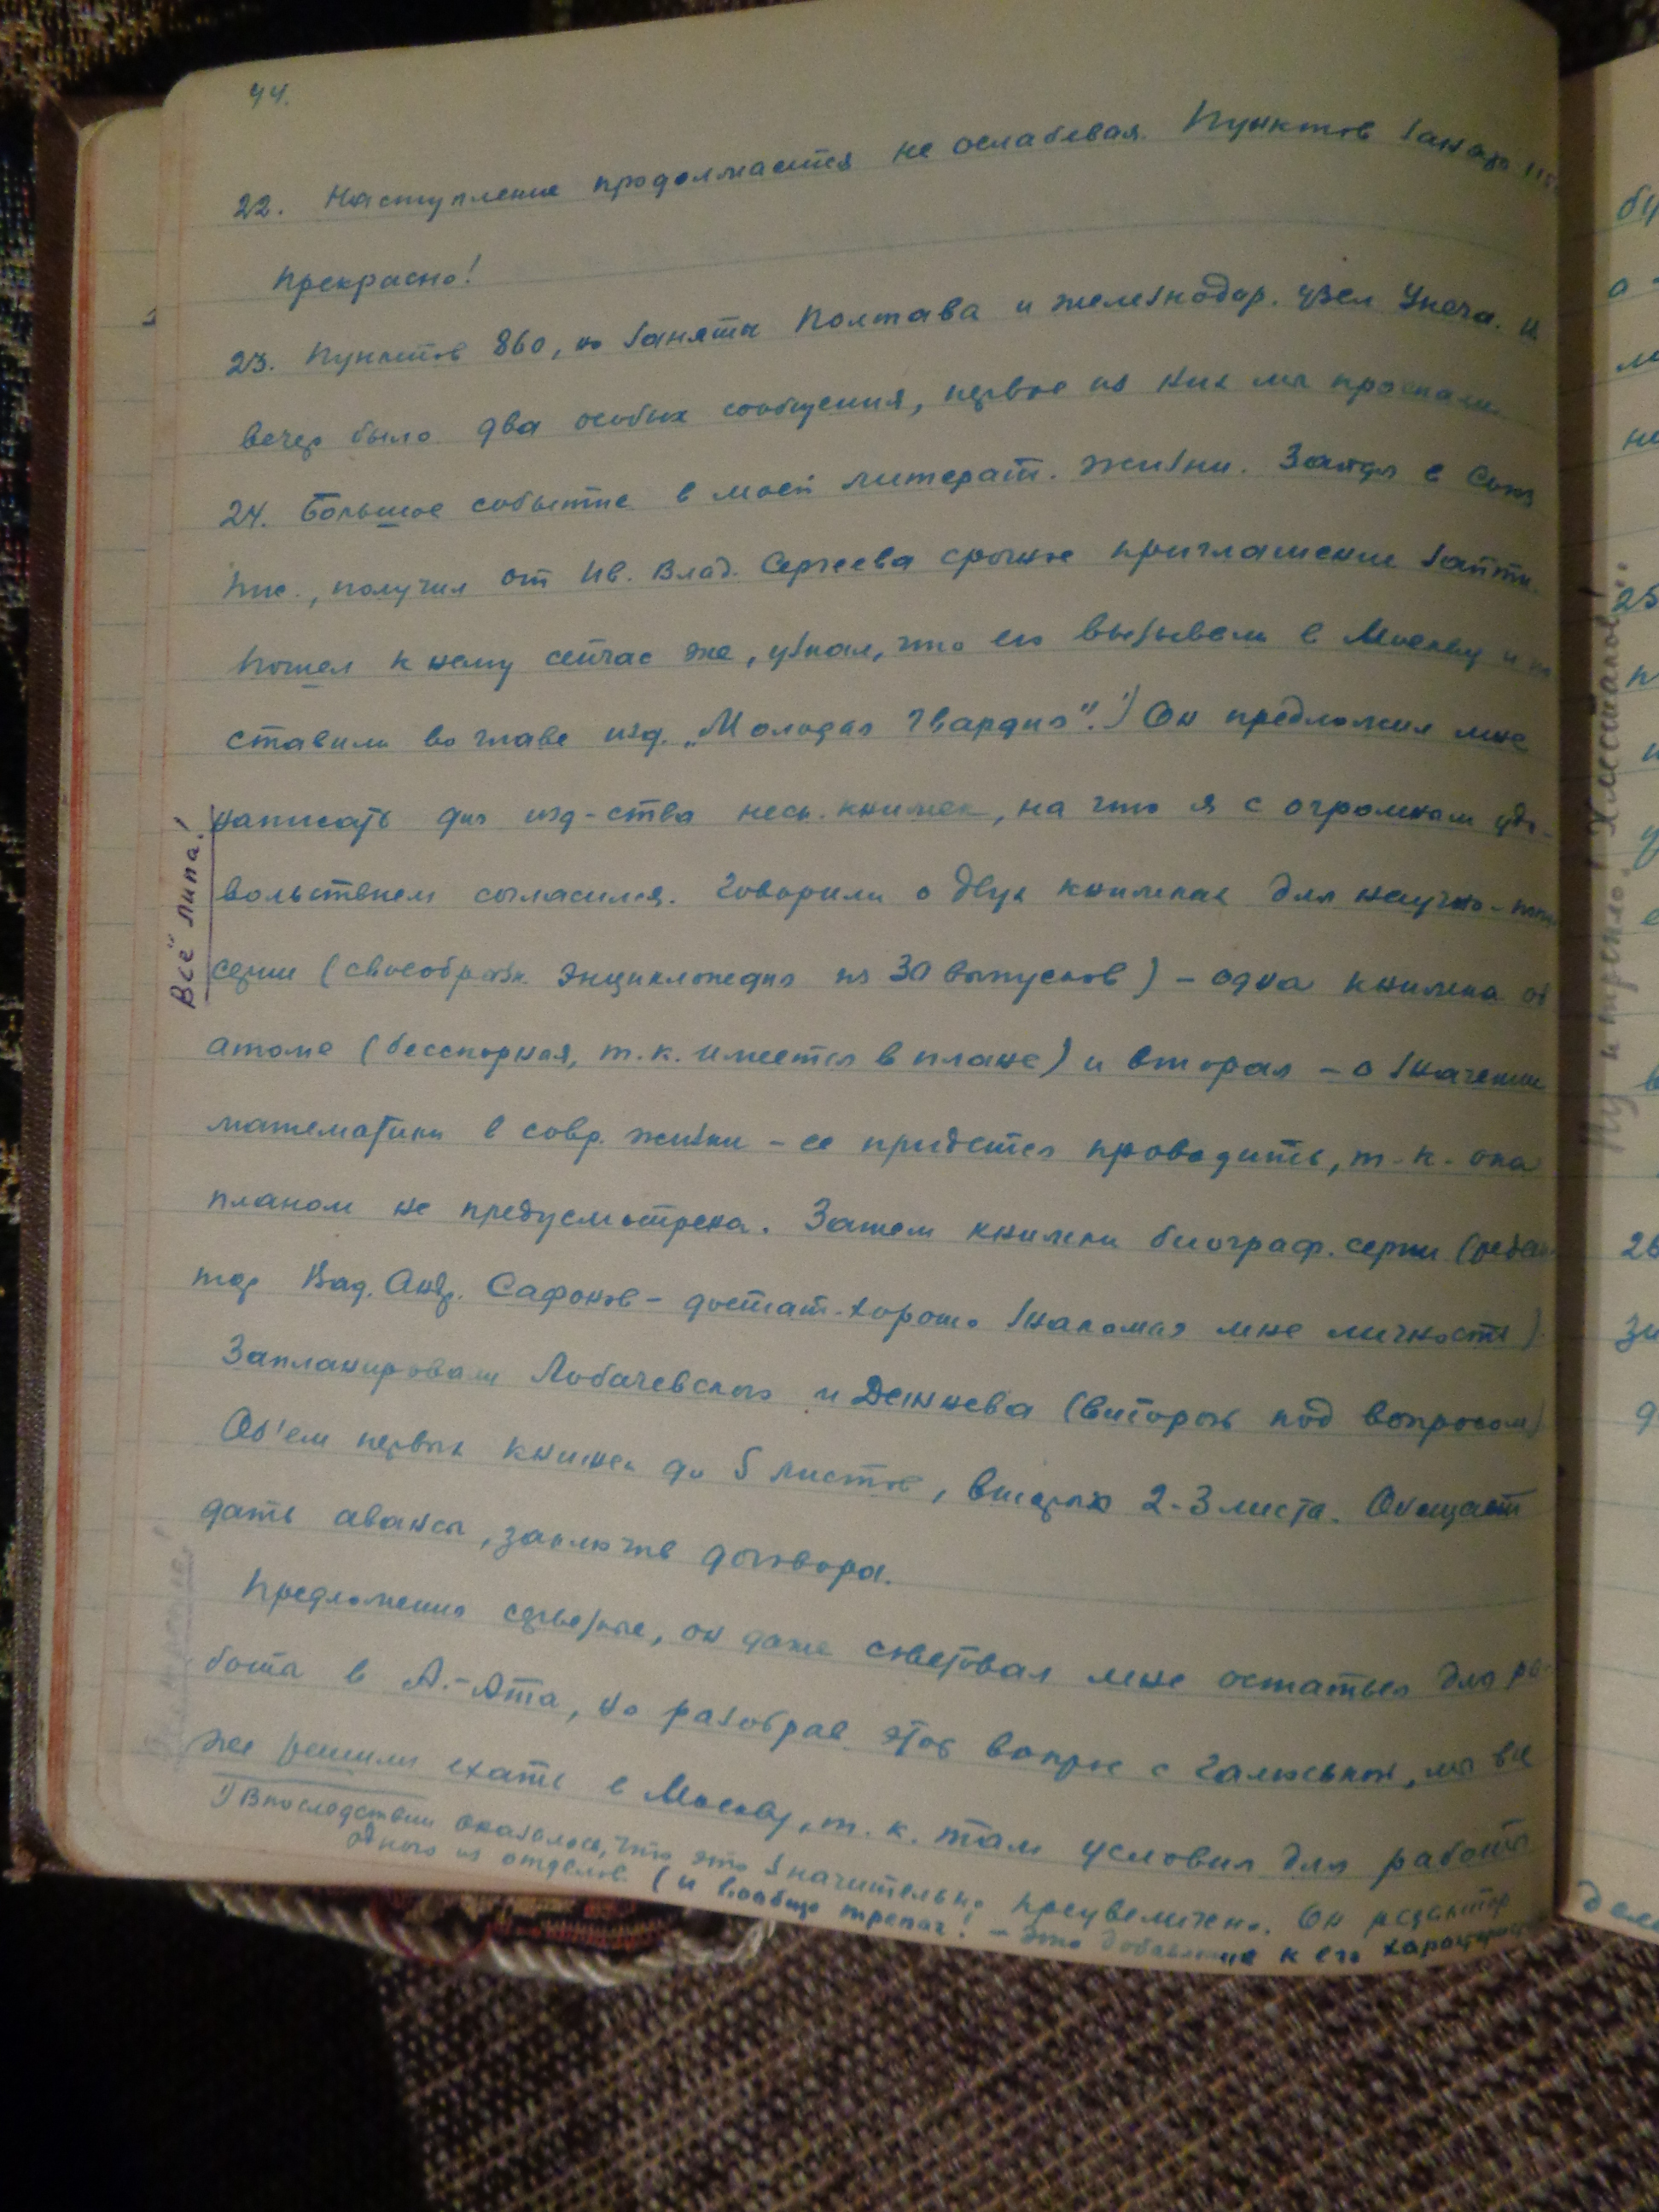 44.
22. Наступление продолжается не ослабевая. Пунктов занято
Прекрасно!
23. Пунктов 860, но заняты Полтава и железнодор. узел Унеча. И
вечер было два особых сообщения, первое из них мы проспали.
24. Большое событие в моей литерат. жизни. Зайдя в Союз
Пис., получил от Ив. Влад. Сергеева срочное приглашение зайти.
Пошел к нему сейчас же, узнал, что его вызывали в Москву и по
ставили во главе изд. „Молодая Гвардия".¹) Он предложил мне
написать для изд-ства неск. книжек, на что я с огромным удо-
вольствием согласился. Говорили о двух книжках для научно-поп.
серии (своеобразн. энциклопедия из 30 выпусков) – одна книжка об
атоме (бесспорная, т.к. имеется в плане) и вторая – о значении
математики в совр. жизни – ее придется проводить, т.к. она
планом не предусмотрена. Затем книжки биограф. серии (редак
тор Вад. Анд. Сафонов – достат. хорошо знакомая мне личность).
Запланировали Лобачевского и Дежнева (второй под вопросом)
Об'ем первых книжек до 5 листов, вторых 2-3 листа. Обещает
дать авансы, заключив договора.
Предложения серьезные, он даже советовал мне остаться для ра-
боты в А.-Ата, но разобрав этот вопрос с Галюськой, мы все
же решили ехать в Москву, т.к. там условия для работы
¹) Впоследствии оказалось, что это значительно преувеличено. Он редактор
одного из отделов. (И вообще трепач! – это добавление к его характеристике
Всё липа!
Ну и трепло! Хлестаков!..